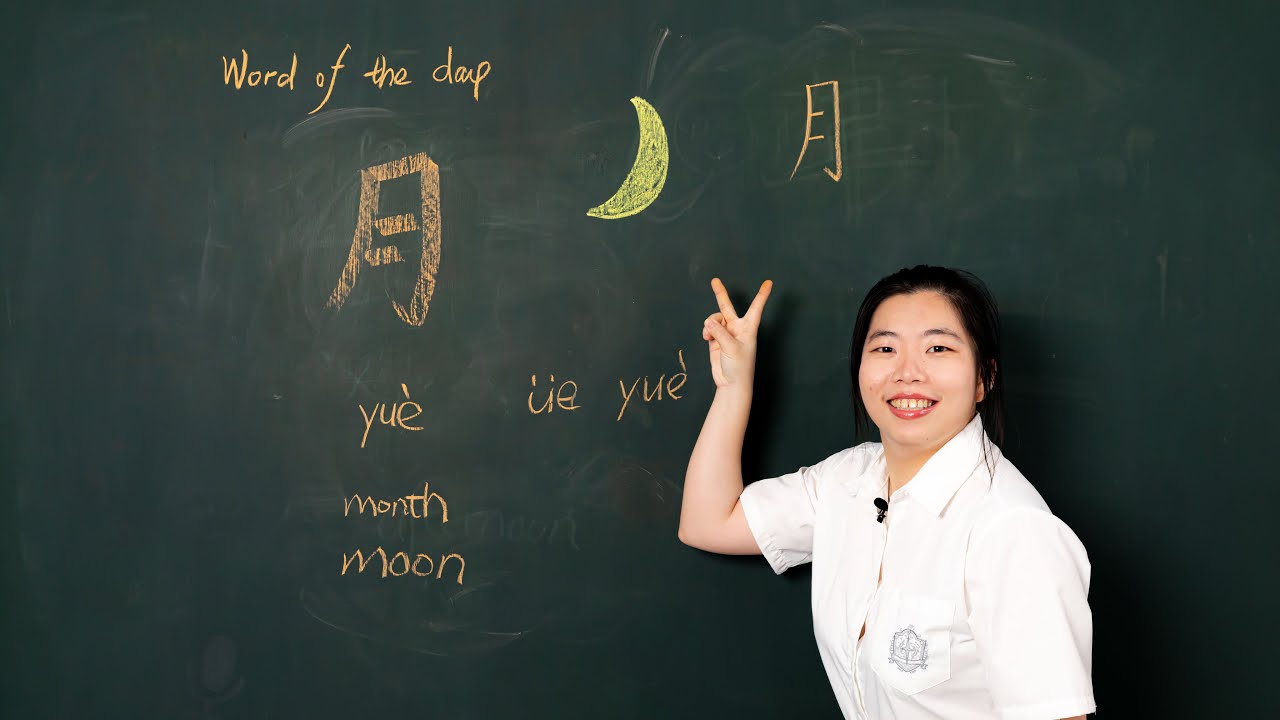 Word of the day
月
月
yuè
üe yuè
month
moon